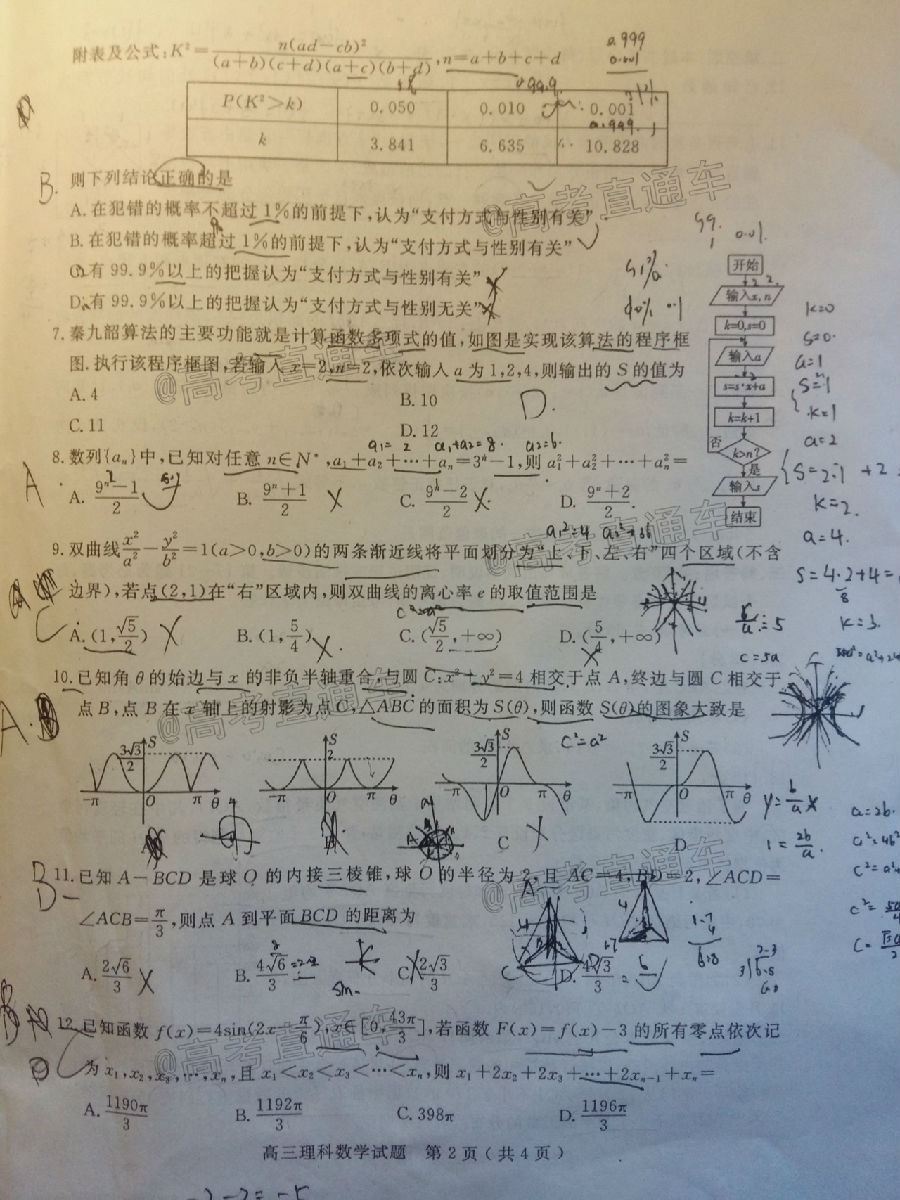 附表及公式:K²=n(ad-cb)²/(a+b)(c+d)(a+c)(b+d),n=a+b+c+d
0.999
0.001
P(K²>k) 0.050 0.010 0.001
k 3.841 6.635 10.828
B. 则下列结论正确的是
A.在犯错的概率不超过1%的前提下,认为“支付方式与性别有关”
B.在犯错的概率超过1%的前提下,认为“支付方式与性别有关”
C.有99.9%以上的把握认为“支付方式与性别有关”
D.有99.9%以上的把握认为“支付方式与性别无关”
7.秦九韶算法的主要功能就是计算函数多项式的值,如图是实现该算法的程序框
图.执行该程序框图,若输入x=2,n=2,依次输入a为1,2,4,则输出的S的值为
A.4 B.10
C.11 D.12
D.
开始
输入x,n
k=0,s=0
输入a
s=s·x+a
k=k+1
否 k>n?
是
输入s
结束
k=0
S=0
a=1
S=1
k=1
a=2
S=2·1+2
k=2.
a=4.
S=4·2+4=
8
k=3.
8.数列{aₙ}中,已知对任意n∈N*,a₁+a₂+…+aₙ=3ⁿ-1,则a₁²+a₂²+…+aₙ²=
a₁=2 a₁+a₂=8. a₂=6.
A
A.(9ⁿ-1)/2 B.(9ⁿ+1)/2 C.(9ⁿ-2)/2 D.(9ⁿ+2)/2
9.双曲线x²/a²-y²/b²=1(a>0,b>0)的两条渐近线将平面划分为“上、下、左、右”四个区域(不含
边界),若点(2,1)在“右”区域内,则双曲线的离心率e的取值范围是
A.(1,√5/2) B.(1,5/4) C.(√5/2,+∞) D.(5/4,+∞)
c=5a
10.已知角θ的始边与x的非负半轴重合,与圆C:x²+y²=4相交于点A,终边与圆C相交于
点B,点B在x轴上的射影为点C,△ABC的面积为S(θ),则函数S(θ)的图象大致是
A.
C²=a²
3√3/2 S -π O π θ
2 S -π O π θ
3√3/2 S -π O π θ
3√3/2 S -π O π θ
C D
y=b/a x
1=2b/a
a=2b.
11.已知A-BCD是球O的内接三棱锥,球O的半径为2,且AC=4,BD=2,∠ACD=
∠ACB=π/3,则点A到平面BCD的距离为
B
A.2√6/3 B.4√6/3 C.2√3/3 D.4√3/3
12.已知函数f(x)=4sin(2x-π/6),x∈[0,43π/3],若函数F(x)=f(x)-3的所有零点依次记
为x₁,x₂,x₃,…,xₙ,且x₁<x₂<x₃<…<xₙ,则x₁+2x₂+2x₃+…+2xₙ₋₁+xₙ=
A.1190π/3 B.1192π/3 C.398π D.1196π/3
高三理科数学试题 第2页(共4页)
@高考直通车
@高考直通车
@高考直通车
@高考直通车
@高考直通车
@高考直通车